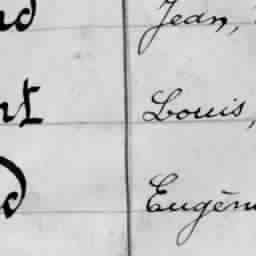 nd Jean,
nt Louis,
d Eugén